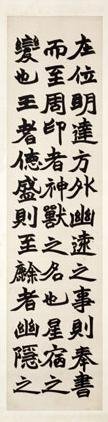 在位明達方外幽遠之事則奉書
而至周印者神獸之名也星宿之
變也王者德盛則至者幽隱之